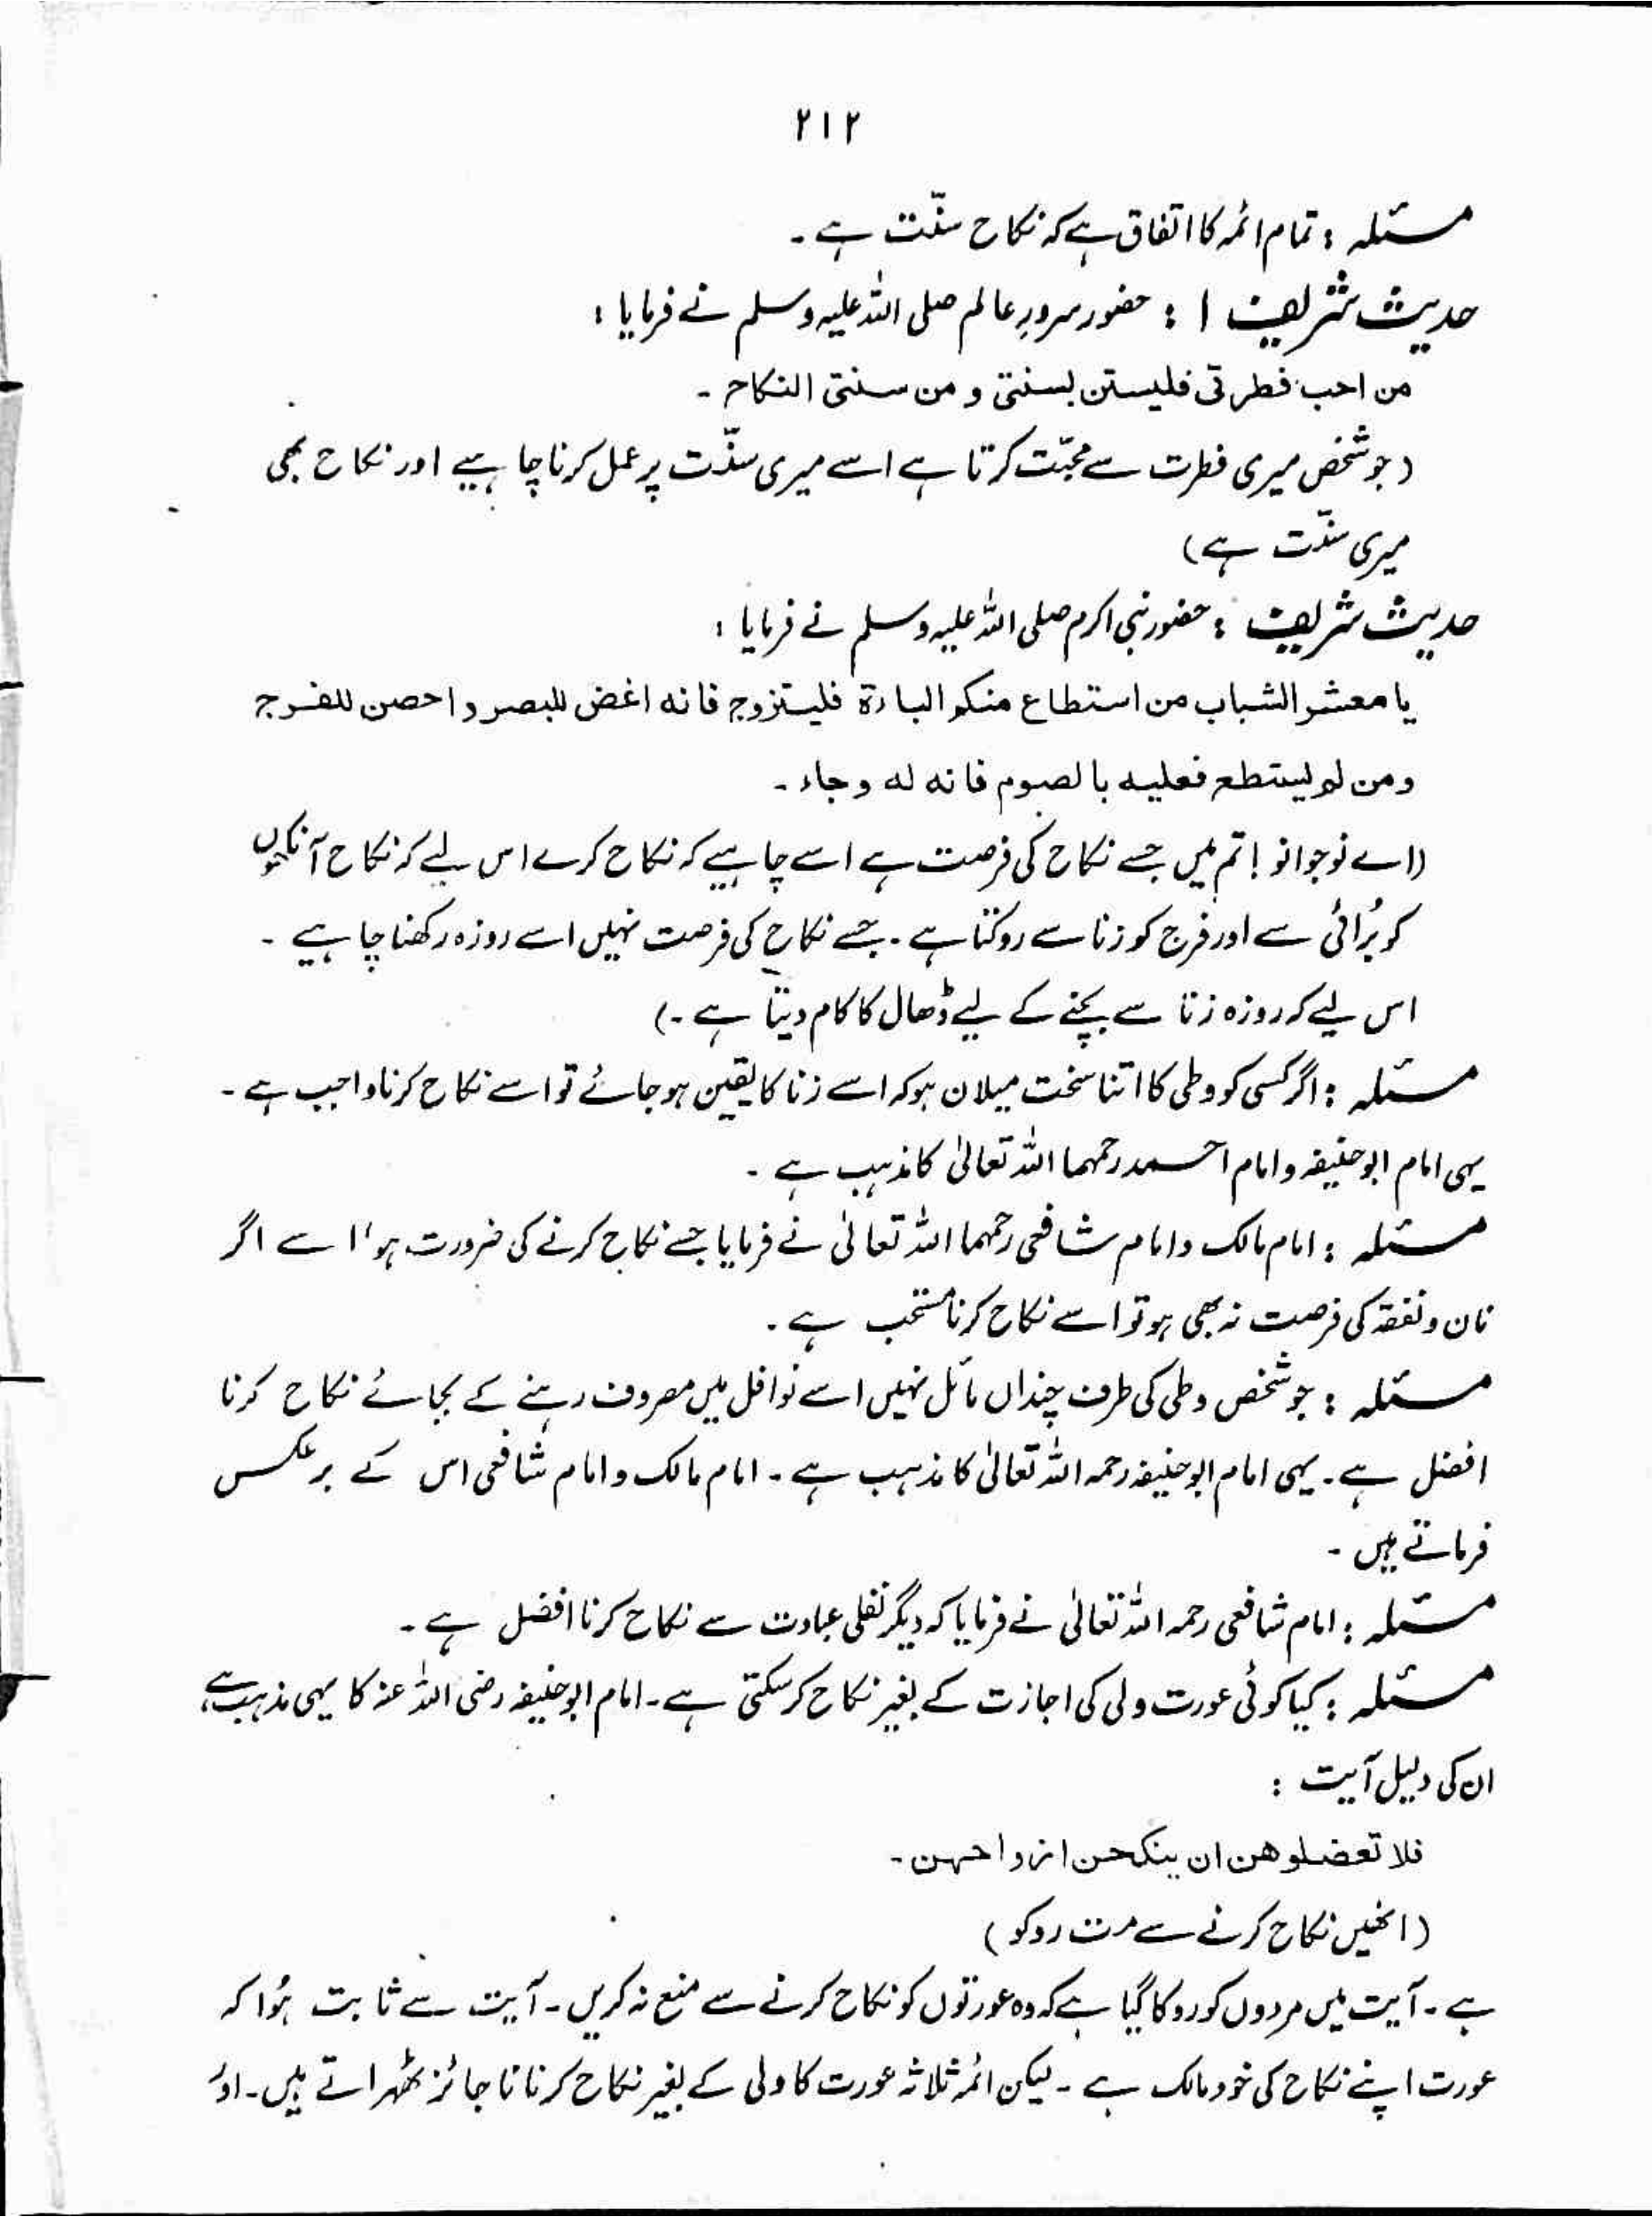 ۲۱۲
مسئلہ : تمام ائمہ کا اتفاق ہے کہ نکاح سنّت ہے ۔
حدیث شریف ۱ : حضور سرورِ عالم صلی اللہ علیہ وسلم نے فرمایا :
من احب فطرتی فلیستن بسنتی و من سنتی النکاح ۔
(جو شخص میری فطرت سے محبّت کرتا ہے اسے میری سنّت پر عمل کرنا چاہیے اور نکاح بھی
میری سنّت ہے)
حدیث شریف : حضور نبی اکرم صلی اللہ علیہ وسلم نے فرمایا :
یا معشر الشباب من استطاع منکم الباءۃ فلیتزوج فانہ اغض للبصر و احصن للفرج
ومن لم لیستطع فعلیہ بالصوم فانہ لہ وجاء ۔
(اے نوجوانو ! تم میں جسے نکاح کی فرصت ہے اسے چاہیے کہ نکاح کرے اس لیے کہ نکاح آنکھوں
کو بُرائی سے اور فرج کو زنا سے روکتا ہے ۔ جسے نکاح کی فرصت نہیں اسے روزہ رکھنا چاہیے ۔
اس لیے کہ روزہ زنا سے بچنے کے لیے ڈھال کا کام دیتا ہے ۔)
مسئلہ : اگر کسی کو وطی کا اتنا سخت میلان ہو کہ اسے زنا کا یقین ہو جائے تو اسے نکاح کرنا واجب ہے ۔
یہی امام ابوحنیفہ و امام احمد رحمہما اللہ تعالیٰ کا مذہب ہے ۔
مسئلہ : امام مالک و امام شافعی رحمہما اللہ تعالیٰ نے فرمایا جسے نکاح کرنے کی ضرورت ہو ' اسے اگر
نان و نفقہ کی فرصت نہ بھی ہو تو اسے نکاح کرنا مستحب ہے ۔
مسئلہ : جو شخص وطی کی طرف چنداں مائل نہیں اسے نوافل میں مصروف رہنے کے بجائے نکاح کرنا
افضل ہے ۔ یہی امام ابوحنیفہ رحمہ اللہ تعالیٰ کا مذہب ہے ۔ امام مالک و امام شافعی اس کے برعکس
فرماتے ہیں ۔
مسئلہ : امام شافعی رحمہ اللہ تعالیٰ نے فرمایا کہ دیگر نفلی عبادت سے نکاح کرنا افضل ہے ۔
مسئلہ : کیا کوئی عورت ولی کی اجازت کے بغیر نکاح کرسکتی ہے ۔ امام ابوحنیفہ رضی اللہ عنہ کا یہی مذہب ہے ،
ان کی دلیل آیت :
فلا تعضلوھن ان ینکحن ازواجہن ۔
(انھیں نکاح کرنے سے مت روکو)
ہے ۔ آیت میں مردوں کو روکا گیا ہے کہ وہ عورتوں کو نکاح کرنے سے منع نہ کریں ۔ آیت سے ثابت ہُوا کہ
عورت اپنے نکاح کی خود مالک ہے ۔ لیکن ائمہ ثلاثہ عورت کا ولی کے بغیر نکاح کرنا ناجائز ٹھہراتے ہیں ۔ اور